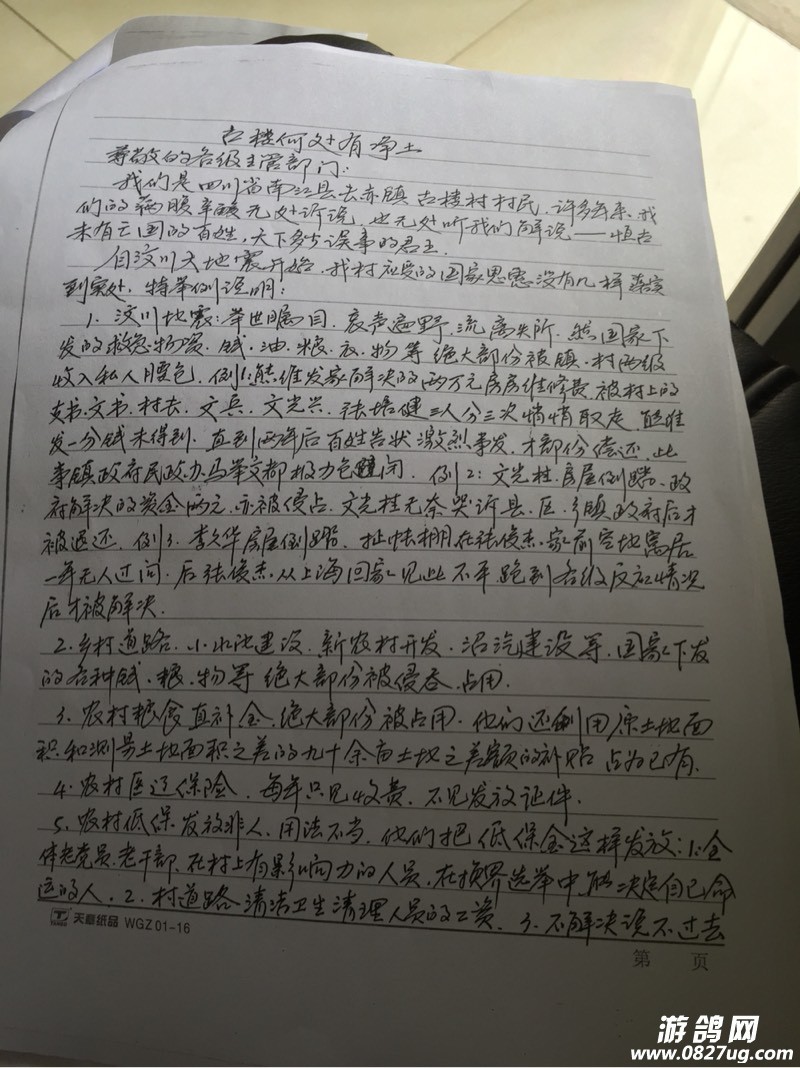 古楼何处有净土
尊敬的各级主管部门:
我们是四川省南江县去亦镇古楼村村民,许多年来,我
们的满腹辛酸无处诉说,也无处听我们解说——恒古
未有亡国的百姓,天下多与误事的君王.
自汶川大地震开始,我村应受的国家恩惠没有几样落实
到实处,特举例说明:
1. 汶川地震:举世瞩目,哀声遍野,流离失所,国家下
发的救急物资、赋、油、粮、衣、物等绝大部份被镇、村两级
收入私人腰包,例1:熊维发家解决的两万元房屋维修费被村上的
支书.文书.村长,文兵、文光兴、张培健三人分三次悄悄取走,熊维
发一分赋未得到.直到两年后百姓告状激烈事发,才部份偿还.此
事镇政府民政办马举文都极力包 闭. 例2:文光桂.房屋倒蹋.政
府解决的资金两元,亦被侵占,文光桂无奈哭诉县、区、乡镇政府后才
被退还.例3.李久华房屋倒蹋.扯帐棚在张俊杰家前空地寓居
一年无人过问.后张俊杰从上海回家见此不平,跑到各级反应情况
后才被解决.
2.乡村道路、小水池建设.新农村开发、沼汽建设等.国家下发
的各种赋、粮、物等绝大部份被侵吞、占用.
3.农村粮食直补金.绝大部份被占用.他们还利用原土地面
积和测量土地面积之差的九十余亩土地之差额的补贴占为已有.
4.农村医辽保险,每年只见收费,不见发放证件.
5.农村低保发放非人,用法不当.他们把低保金这样发放:1.全
体老党员.老干部,在村上有影响力的人员,在换界选举中能决定自己命
运的人.2.村道路清洁卫生清理人员的工资.3.不解决说不过去
天章纸品 WGZ 01-16
第 页
游鸽网
www.0827ug.com